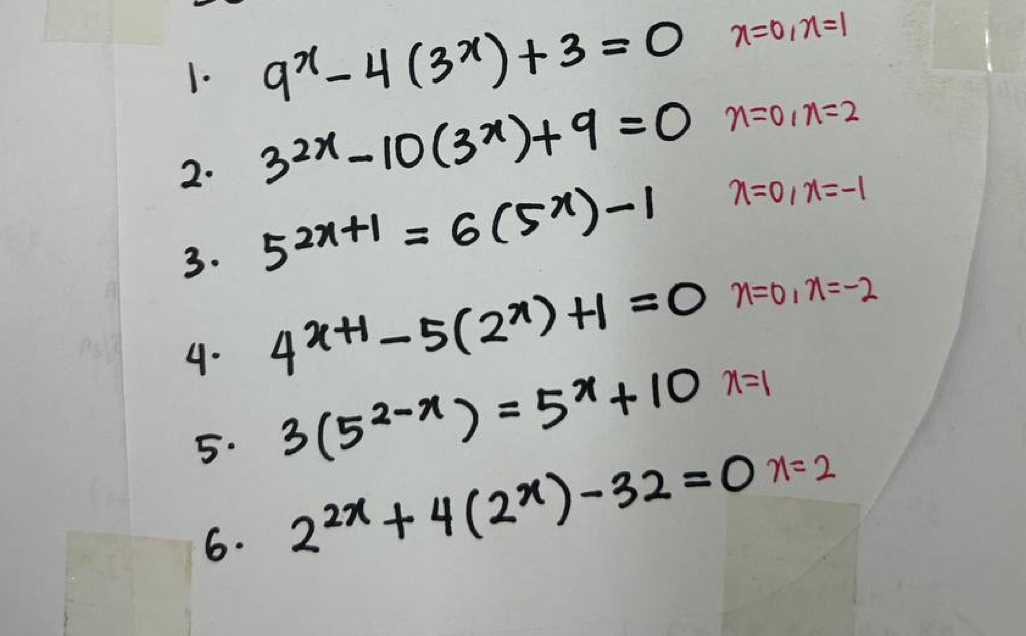 1. 9ˣ - 4(3ˣ) + 3 = 0 x=0, x=1
2. 3²ˣ - 10(3ˣ) + 9 = 0 x=0, x=2
3. 5²ˣ⁺¹ = 6(5ˣ) - 1 x=0, x=-1
4. 4ˣ⁺¹ - 5(2ˣ) + 1 = 0 x=0, x=-2
5. 3(5²⁻ˣ) = 5ˣ + 10 x=1
6. 2²ˣ + 4(2ˣ) - 32 = 0 x=2